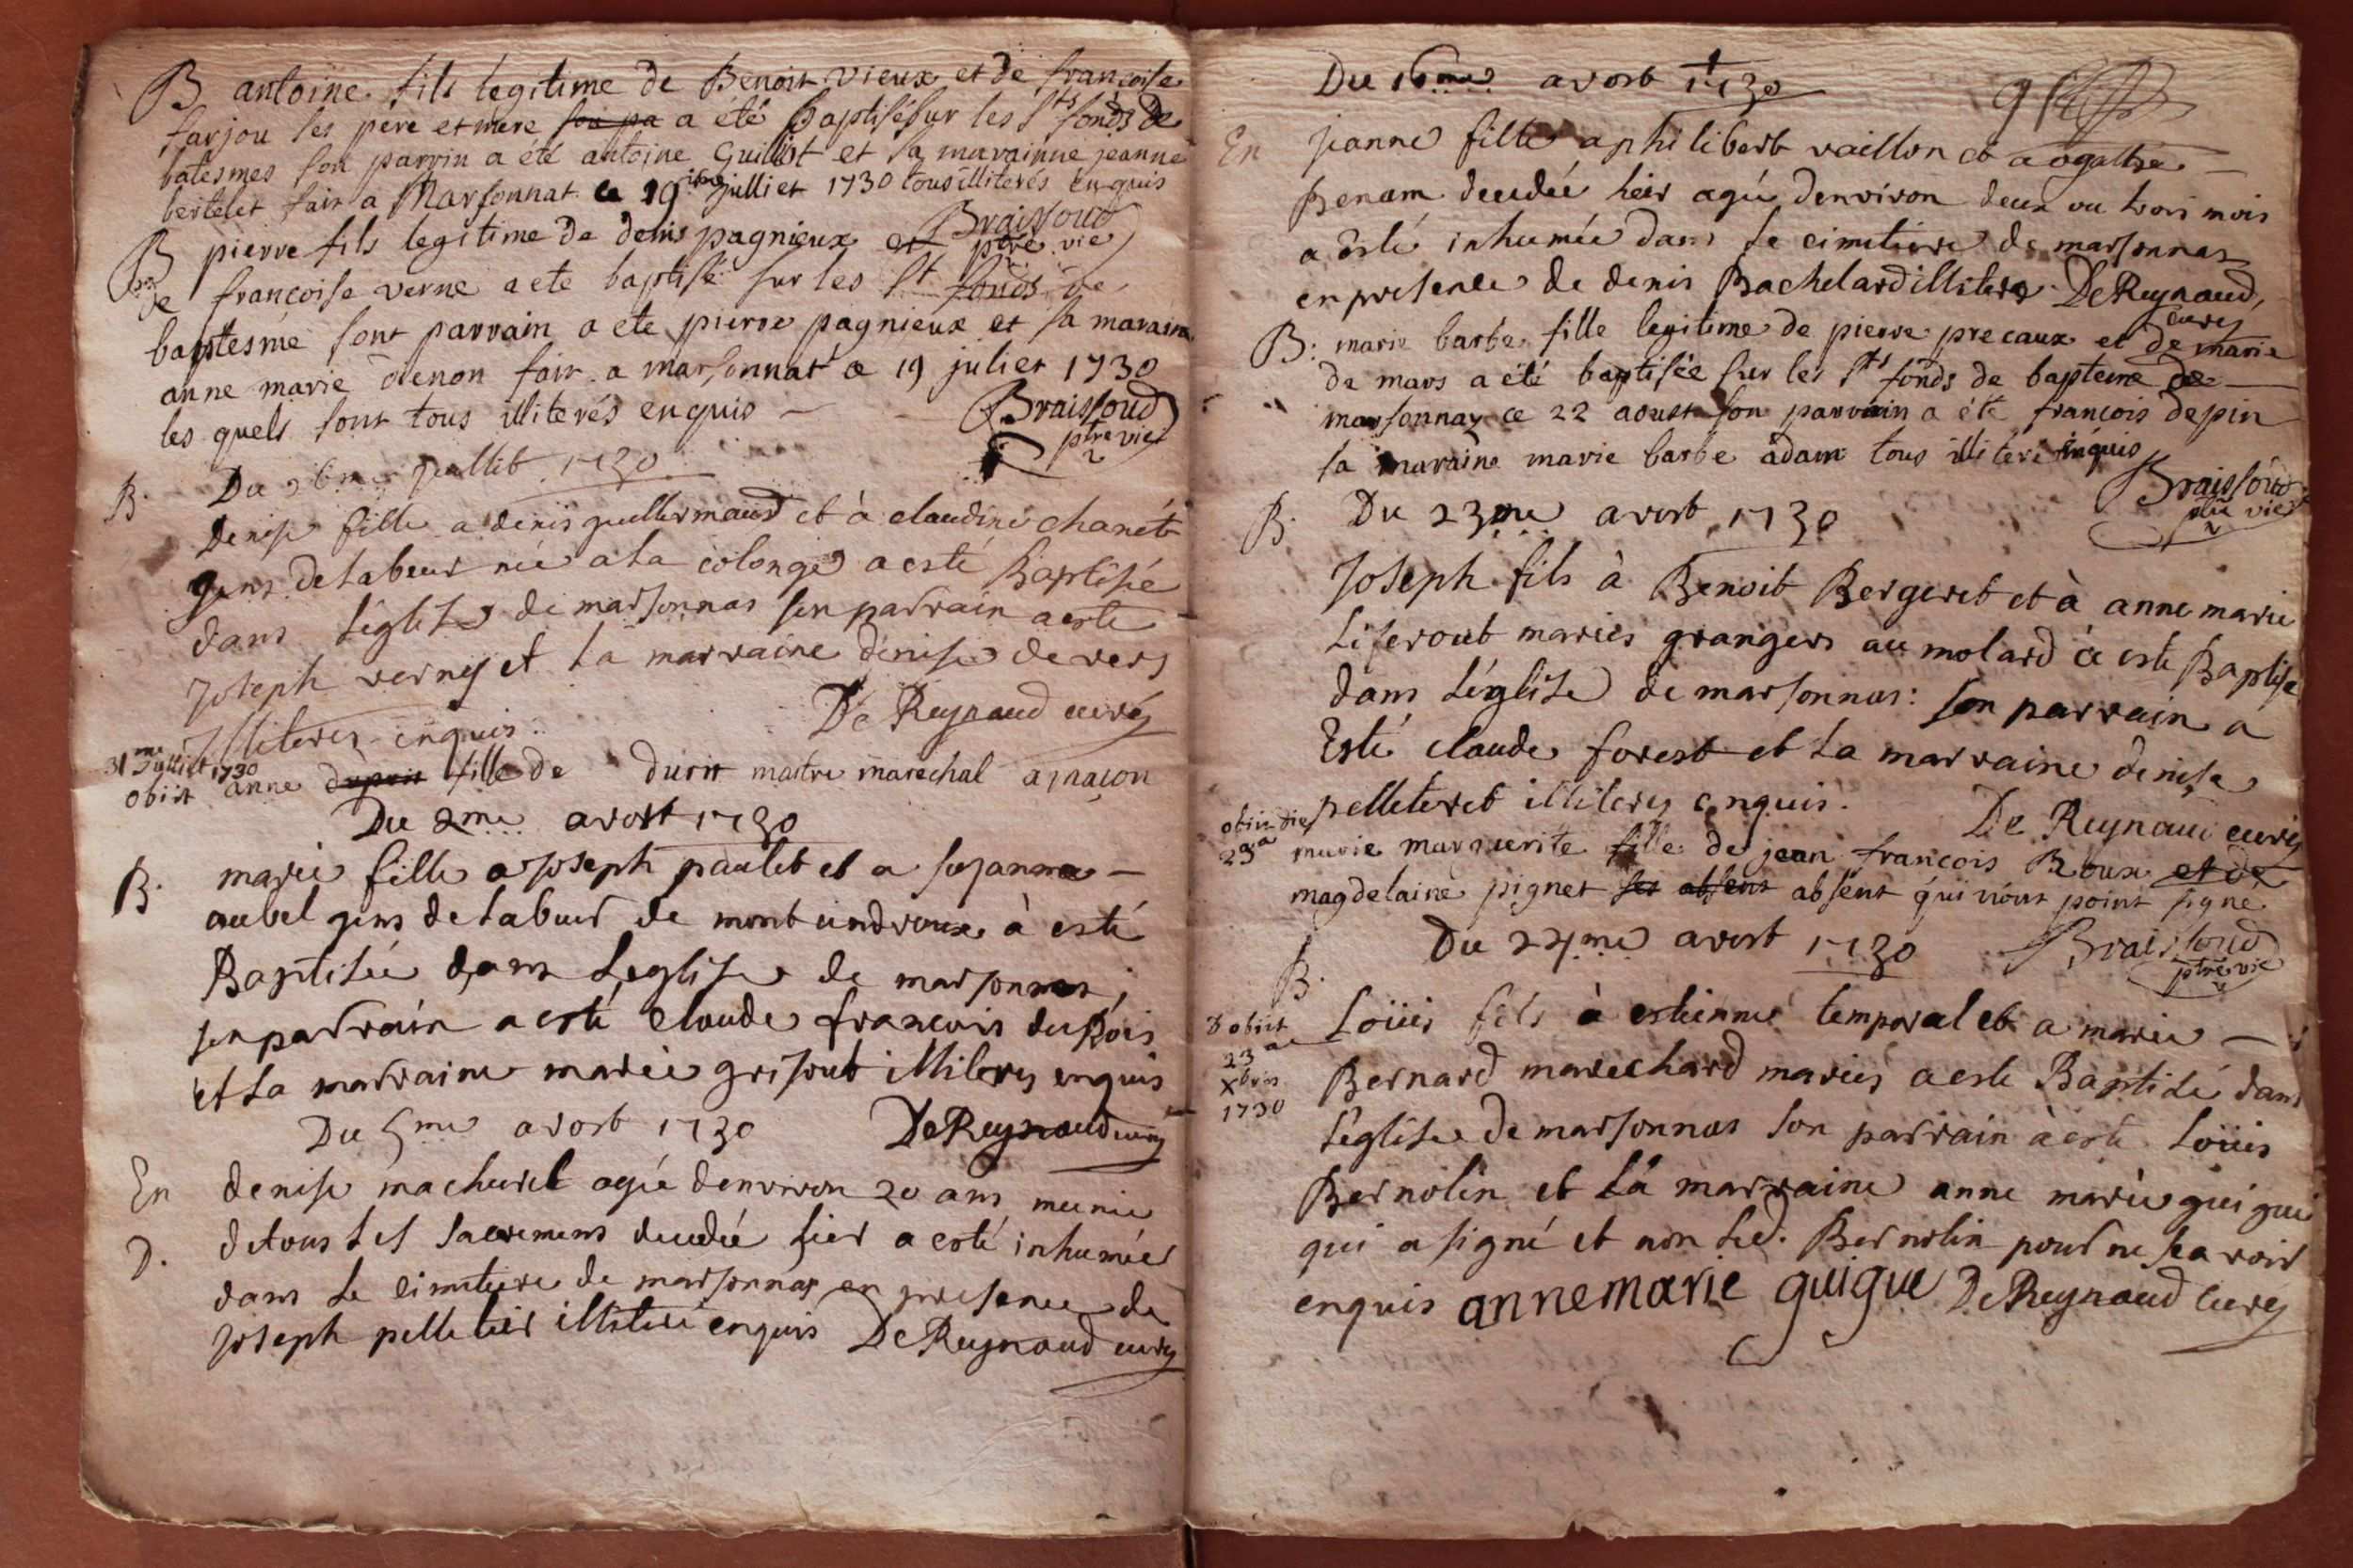 B antoine fils legitime de Benoit vieux et de francoise
farjou ses pere et mere son pa a été baptisé sur les Sts fonds de
batesmes son parrin a été antoine Guillot et sa marainne jeanne
bertelet fait a Marsonnat ce 19 julliet 1730 tous illiterés enquis
Braissoud
ptre vic
B pierre fils legitime de denis pagnieux et
de francoise verne a ete baptisé sur les St fonds de
baptesme sont parrain a ete pierre pagnieux et sa maraine
anne marie fait a marsonnat ce 19 juliet 1730
les quels sont tous illiterés enquis
Braissoud
ptre vic
B. Du 26me juillet 1730
Denise fille a denis guillermaud et à claudine chanet
gens de labeur née a la colonge a esté Baptisée
dans l'eglise de marsonnas son parrain a esté
Joseph verney et la marraine denise de vers
Illiteres enquis. De Reynaud curé
31me Julliet 1730
obiit anne dupuit fille de durit maitre marechal a macon
Du 2me aoust 1730
B. marie fille a joseph paulet et a suzanne
aubel gens de labeur de mont a esté
Baptisée dans L'eglise de marsonnas,
son parrain a esté claude francois dubois
et la marraine marie grisout illiteres enquis
Du 5me avost 1730 De Reynaud curé
En denise machuret agée denviron 20 ans munie
D. de tous les sacremens decedée hier a esté inhumée
dans le cimitiere de marsonnas en presence de
Joseph pelletier illiteré enquis De Reynaud curé
Du 16me avost 1730
En jeanne fille a philibert vaillon et a
Benam decedée hier agée denviron deux ou trois mois
a esté inhumée dans le cimitiere de marsonnas
en presence de denis Bachelard illitere De Reynaud,
curé
B: marie barbe fille legitime de pierre precaux et de marie
de mars a été baptisée sur les Sts fonds de bapteme de
marsonnay ce 22 aoust son parrain a été francois depin
sa maraine marie barbe adam tous illiteré enquis
Braissoud
ptre vic
B. Du 23me avost 1730
Joseph fils à Benoit Bergeret et à anne marie
Liserout mariés grangers au molard à esté Baptisé
dans L'église de marsonnas: son parrain a
Esté claude forest et La marraine denise
pelleteret illiteres enquis. De Reynaud curé
obiit die
23a marie marguerite fille de jean francois Roux et de
magdelaine pignet ses absent absent qui n'ont point signé
Du 24me avost 1730 Braissoud
ptre vic
B.
obiit
23a
Xbris
1730
Loüis fils à estienne temporal et a marie
Bernard marechard mariés a esté Baptisé dans
L'église de marsonnas son parrain à esté Loüis
Bernolin et La marraine anne marie guigue
qui a signé et non led. Bernolin pour ne scavoir
enquis annemarie guigue De Reynaud curé